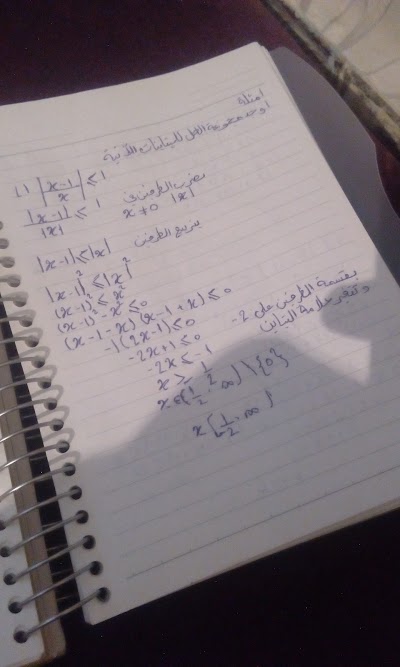 امثلة
أوجد مجموعة الحل للمتباينات الآتية
1) |x-1 / x| ≤ 1
بضرب الطرفين في |x|
|x-1| / |x| ≤ 1    x ≠ 0
|x-1| ≤ |x|    بتربيع الطرفين
|x-1|² ≤ |x|²
(x-1)² ≤ x²
(x-1)² - x² ≤ 0
(x-1-x)(x-1+x) ≤ 0
-1(2x-1) ≤ 0
-2x+1 ≤ 0    بقسمة الطرفين على -2
-2x ≤ -1    وتغير علامة التباين
x ≥ 1/2
x ∈ [1/2, ∞) \ {0}
x [1/2, ∞)